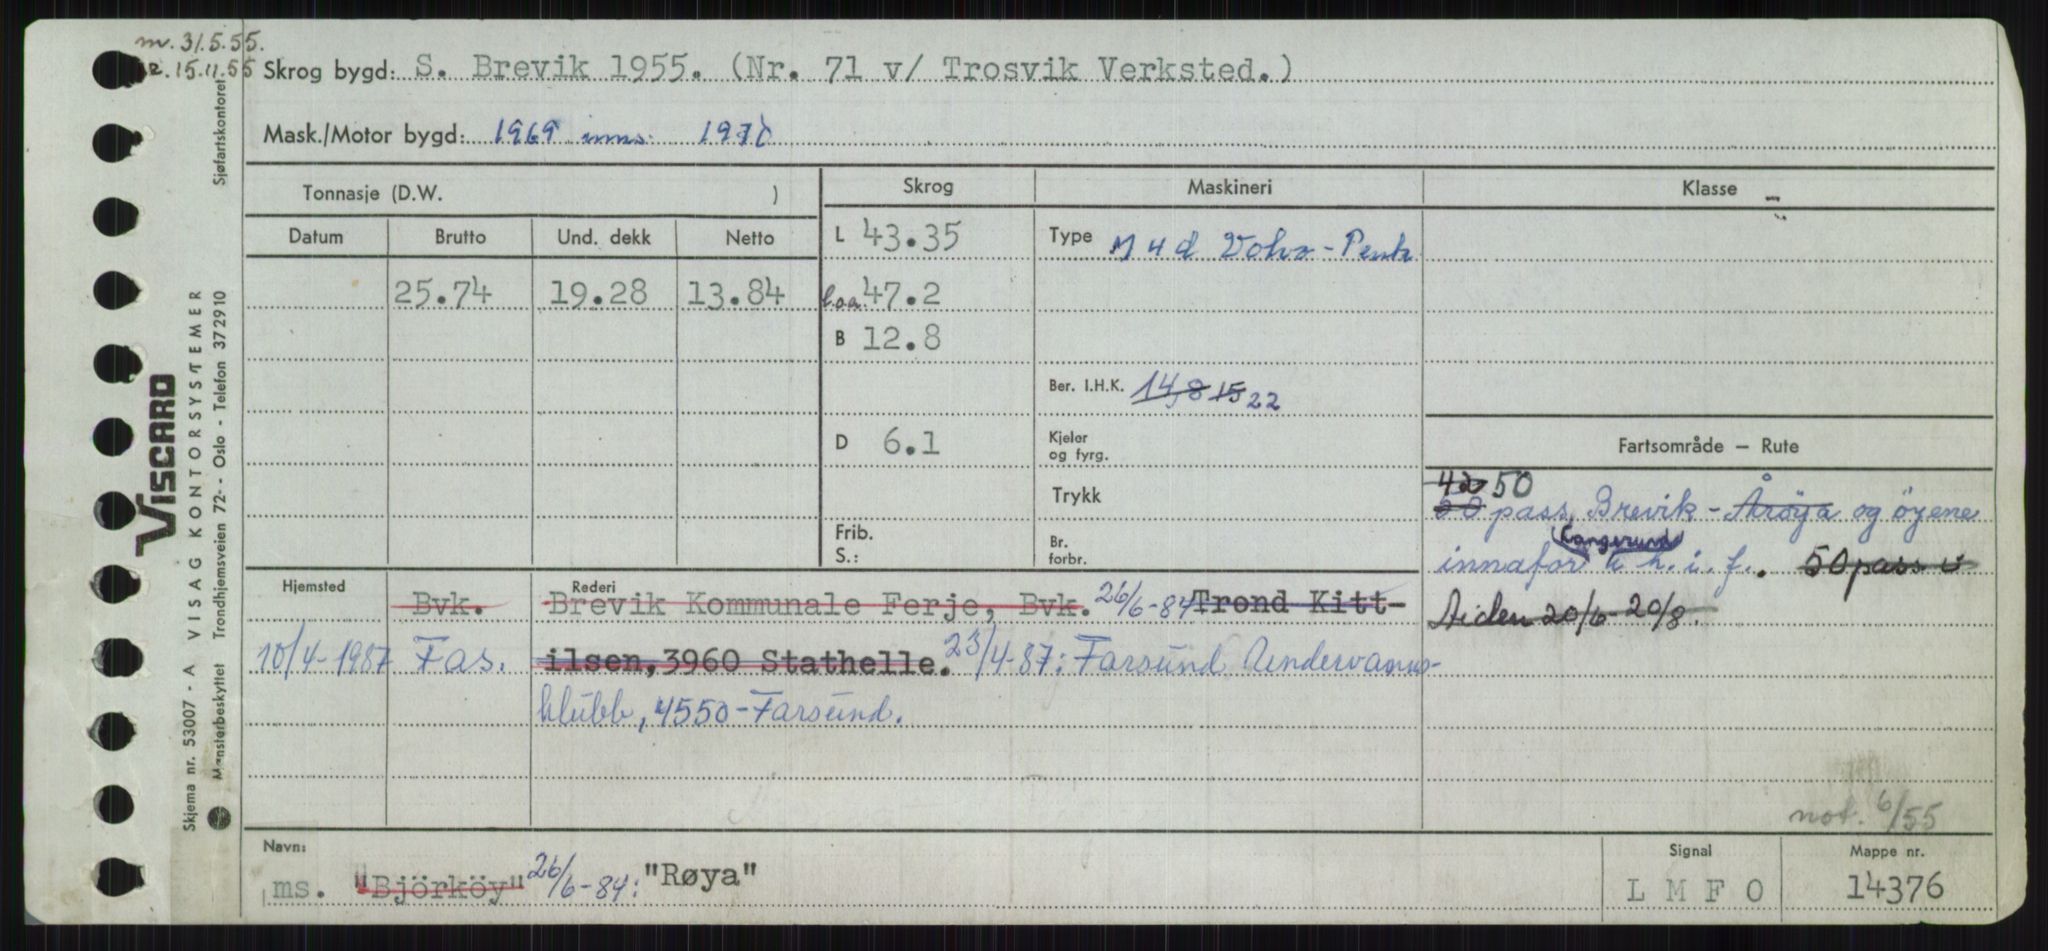 m. 31.5.55.
15.11.55
Skrog bygd: S. Brevik 1955. (Nr. 71 v/ Trosvik Verksted.)
Mask./Motor bygd: 1969 inns. 1970
Tonnasje (D.W. )
Skrog
Maskineri
Klasse
Datum Brutto Und. dekk Netto
L 43.35
Type M 4 d Volvo-Penta
25.74 19.28 13.84
l.o.a. 47.2
B 12.8
Ber. I.H.K. 14,8 15 22
D 6.1
Kjeler
og fyrg.
Fartsområde — Rute
Trykk
50
pass. Brevik - Årøya og øyene
Frib.
S.:
Br.
forbr.
Langesund
innafor h. i. f. . 50 pass i
tiden 20/6 - 20/8.
Hjemsted
Rederi
Bvk. Brevik Kommunale Ferje, Bvk. 26/6-84 Trond Kitt-
10/4-1987 Fas. ilsen, 3960 Stathelle. 23/4-87: Farsund Undervanns-
klubb, 4550-Farsund.
not. 6/55
Navn:
Signal
Mappe nr.
ms. "Björköy" 26/6-84: "Røya"
L M F O
14376
Sjøfartskontoret
VISCARD
VISAG KONTORSYSTEMER
Trondhjemsveien 72 - Oslo - Telefon 372910
Skjema nr. 53007 - A
Mønsterbeskyttet